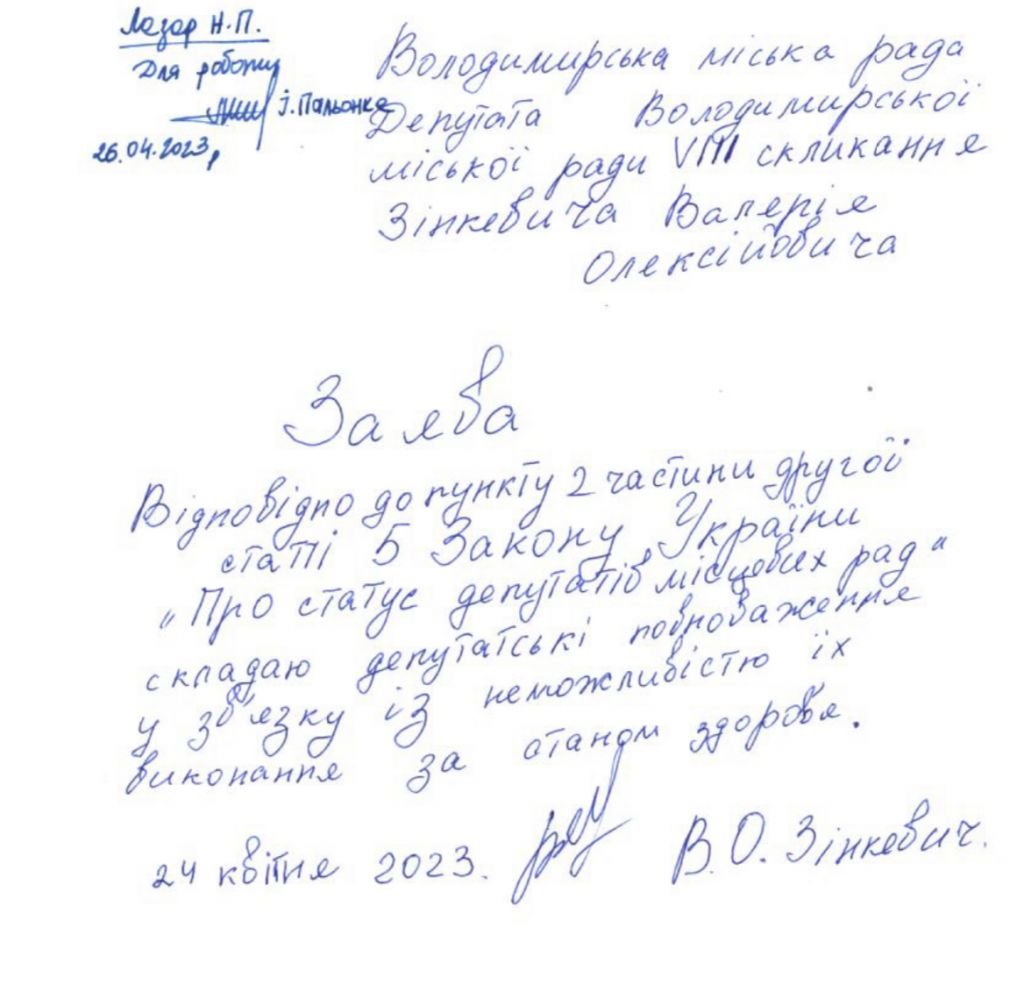 Лазар Н.П.
Для роботи
І. Пальонка
26.04.2023,
Володимирська міська рада
Депутата Володимирської
міської ради VIII скликання
Зінкевича Валерія
Олексійовича
Заява
Відповідно до пункту 2 частини другої
статті 5 Закону України
„Про статус депутатів місцевих рад"
складаю депутатські повноваження
у зв'язку із неможливістю їх
виконання за станом здоровя.
24 квітня 2023. В.О. Зінкевич.